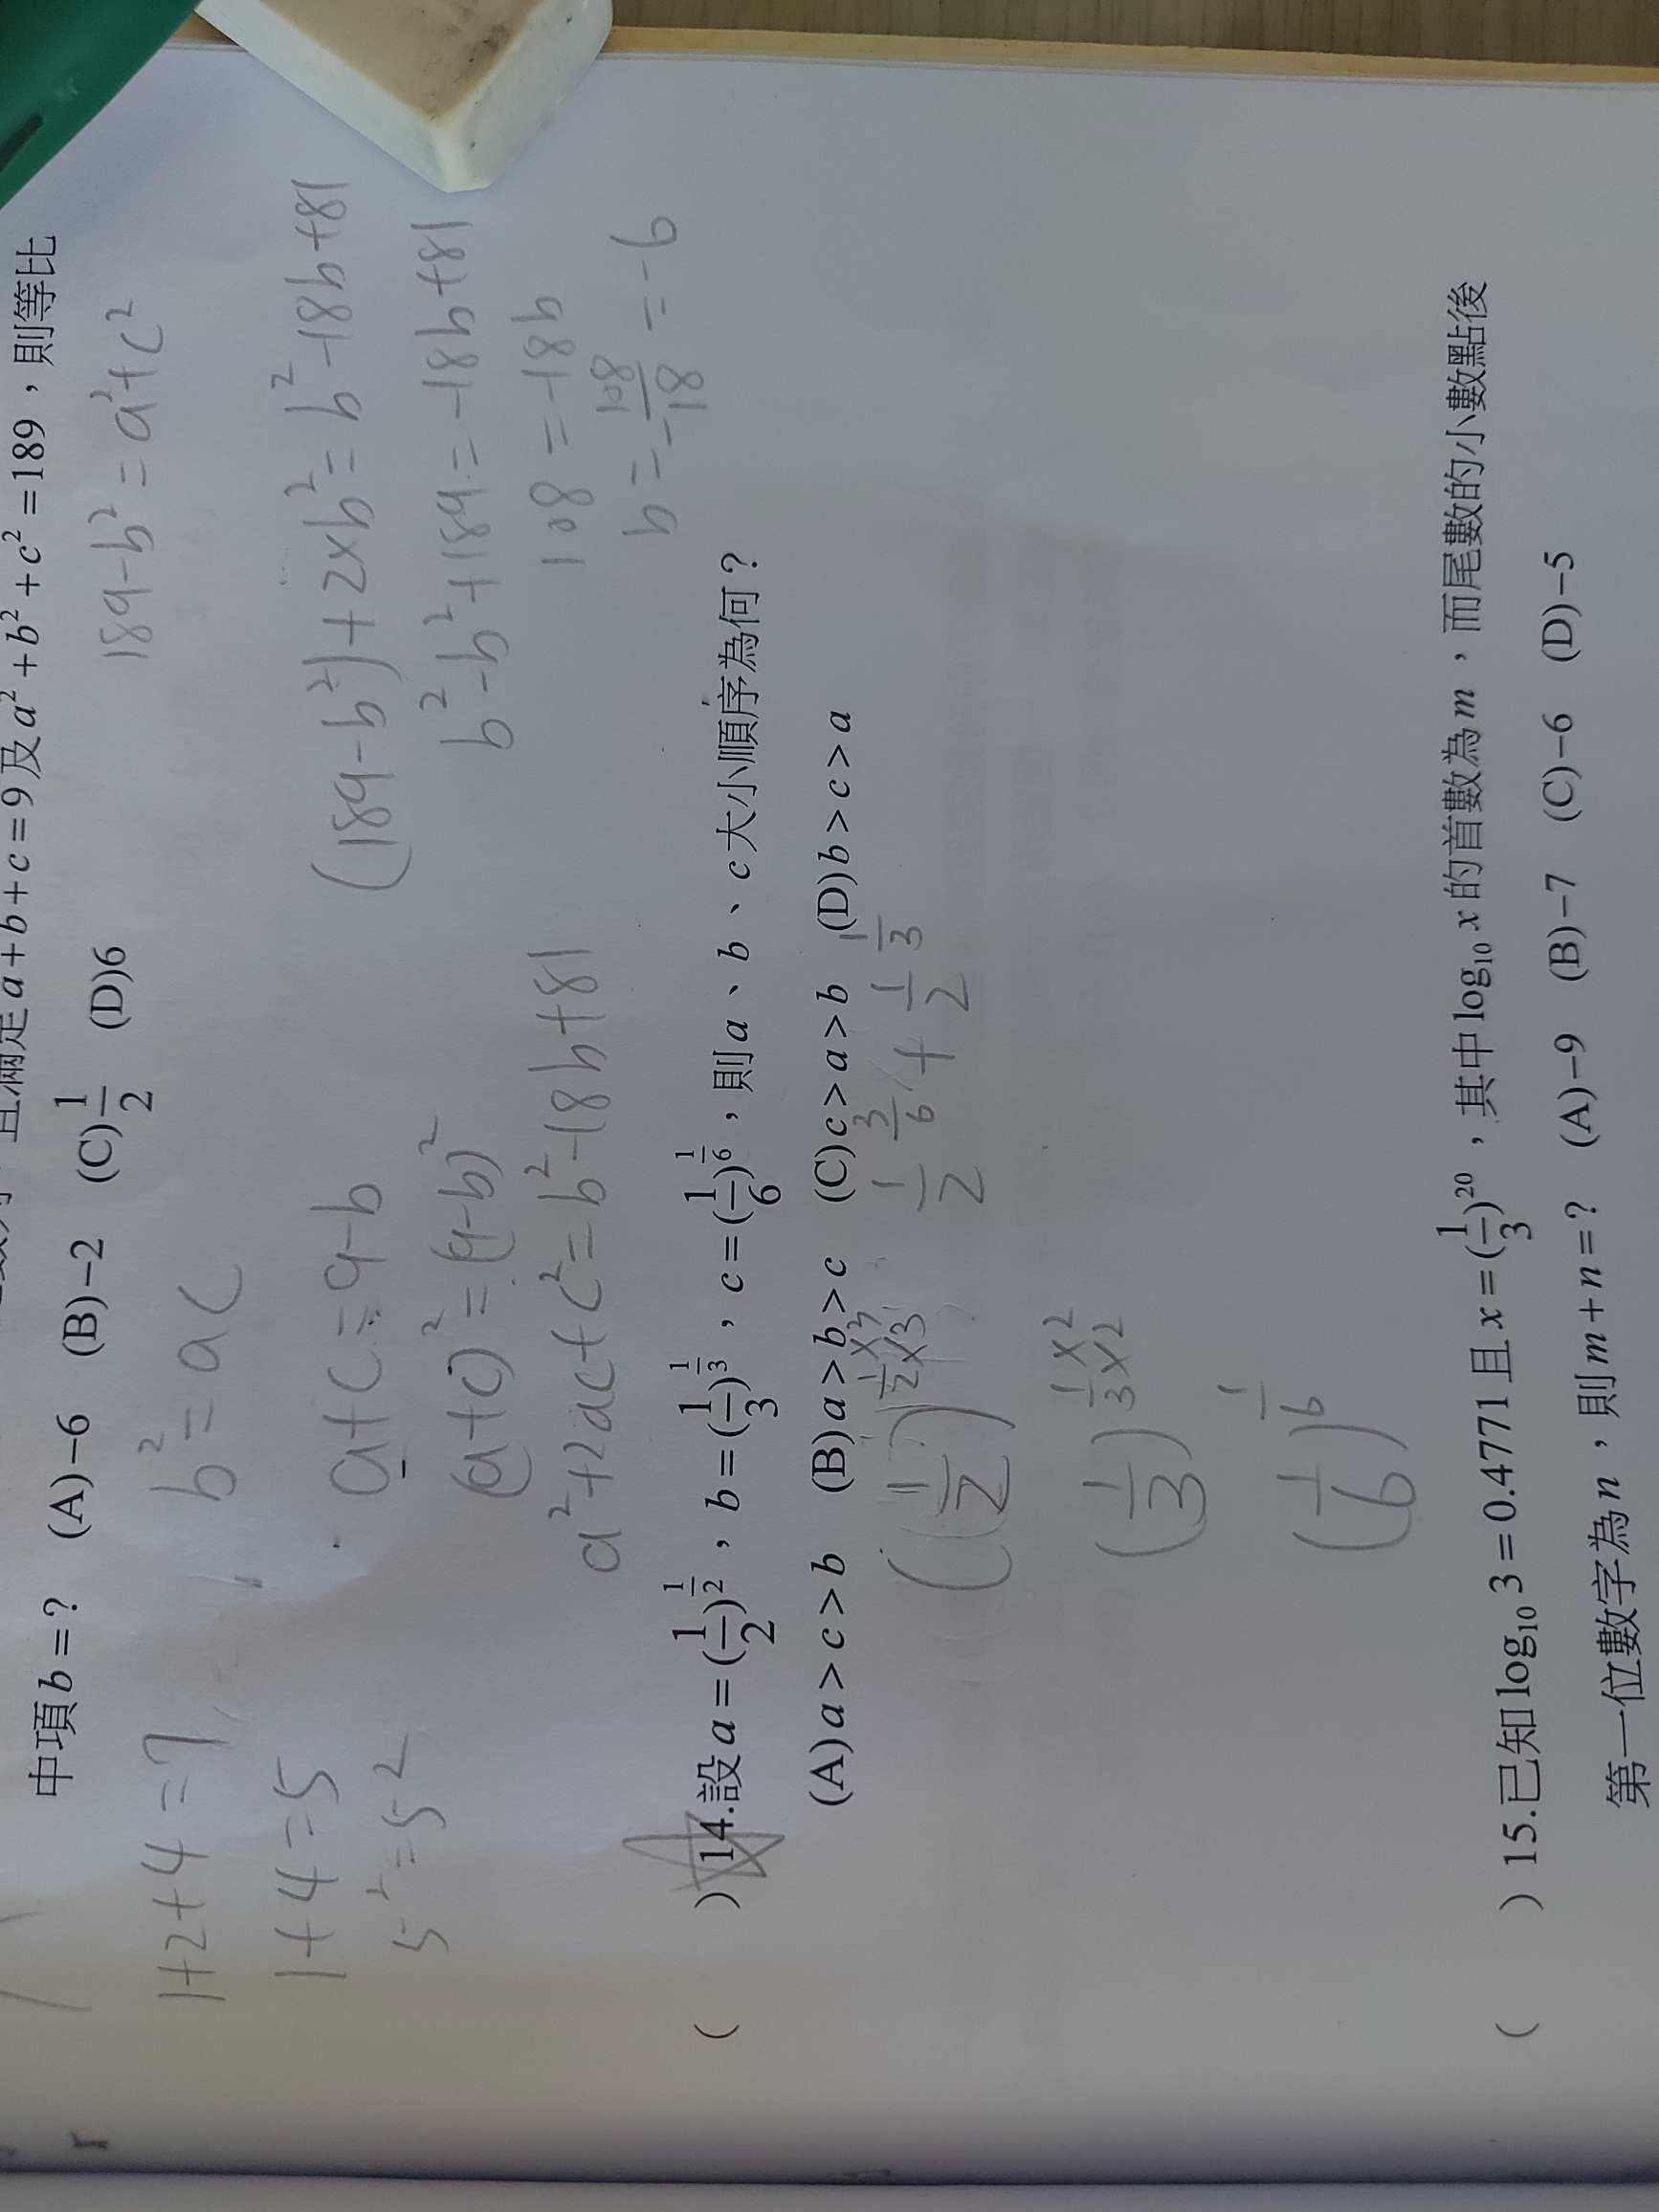 且滿足a+b+c=9及a²+b²+c²=189，則等比
中項b=? (A)−6 (B)−2 (C)1/2 (D)6
189-b²=a²+c²
1+2+4=7
b²=ac
1+4=5
a+c=9-b
(189-b²)+2×b²=b²-18b+81
5²=5²
(a+c)²=(9-b)²
b²-b²+189=-18b+81
a²+2ac+c²=b²-18b+81
108=-18b
b=-108/18=-6
( )14.設a=(1/2)^(1/2)，b=(1/3)^(1/3)，c=(1/6)^(1/6)，則a、b、c大小順序為何？
(A)a>c>b (B)a>b>c (C)c>a>b (D)b>c>a
((1/2)^(1×3/2×3)
1/2 3/6 + 1/2 1/3
(1/3)^(1×2/3×2)
(1/6)^(1/6)
( )15.已知log₁₀3=0.4771且x=(1/3)²⁰，其中log₁₀x的首數為m，而尾數的小數點後
第一位數字為n，則m+n=? (A)−9 (B)−7 (C)−6 (D)−5